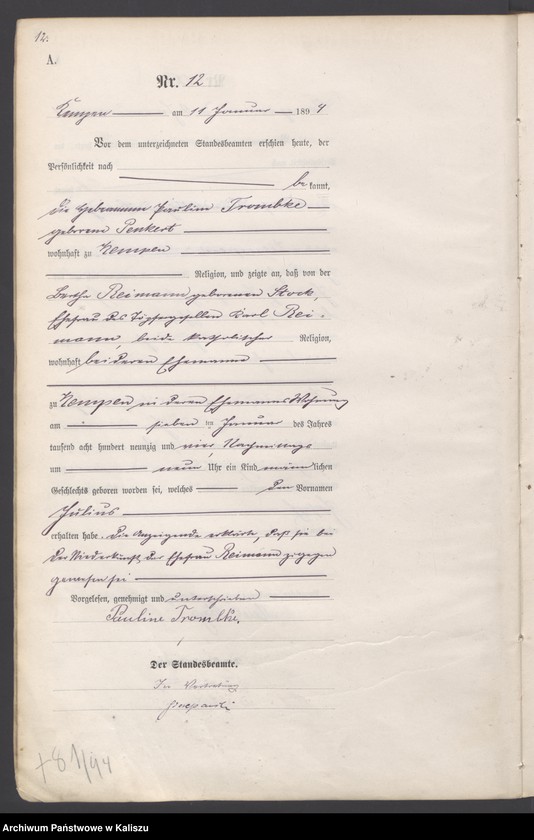 12.
A.
Nr. 12
Kempen am 11 Januar 1894
Vor dem unterzeichneten Standesbeamten erschien heute, der
Persönlichkeit nach
be kannt,
die Hebamme Pauline Trombke
geborene Penkert
wohnhaft zu Kempen
Religion, und zeigte an, daß von der
Bertha Reimann geborenen Stock,
Ehefrau des Töpfergesellen Karl Rei-
mann, beide katholischer Religion,
wohnhaft bei deren Ehemanne
zu Kempen in deren Ehemannes Wohnung
am sieben ten Januar des Jahres
tausend acht hundert neunzig und vier, Nachmittags
um neun Uhr ein Kind männlichen
Geschlechts geboren worden sei, welches den Vornamen
Julius
erhalten habe. Die Anzeigende erklärte, daß sie bei
der Niederkunft der Ehefrau Reimann zugegen
gewesen sei
Vorgelesen, genehmigt und unterschrieben
Pauline Trombke.
Der Standesbeamte.
In Vertretung
+8 1/94
Archiwum Państwowe w Kaliszu